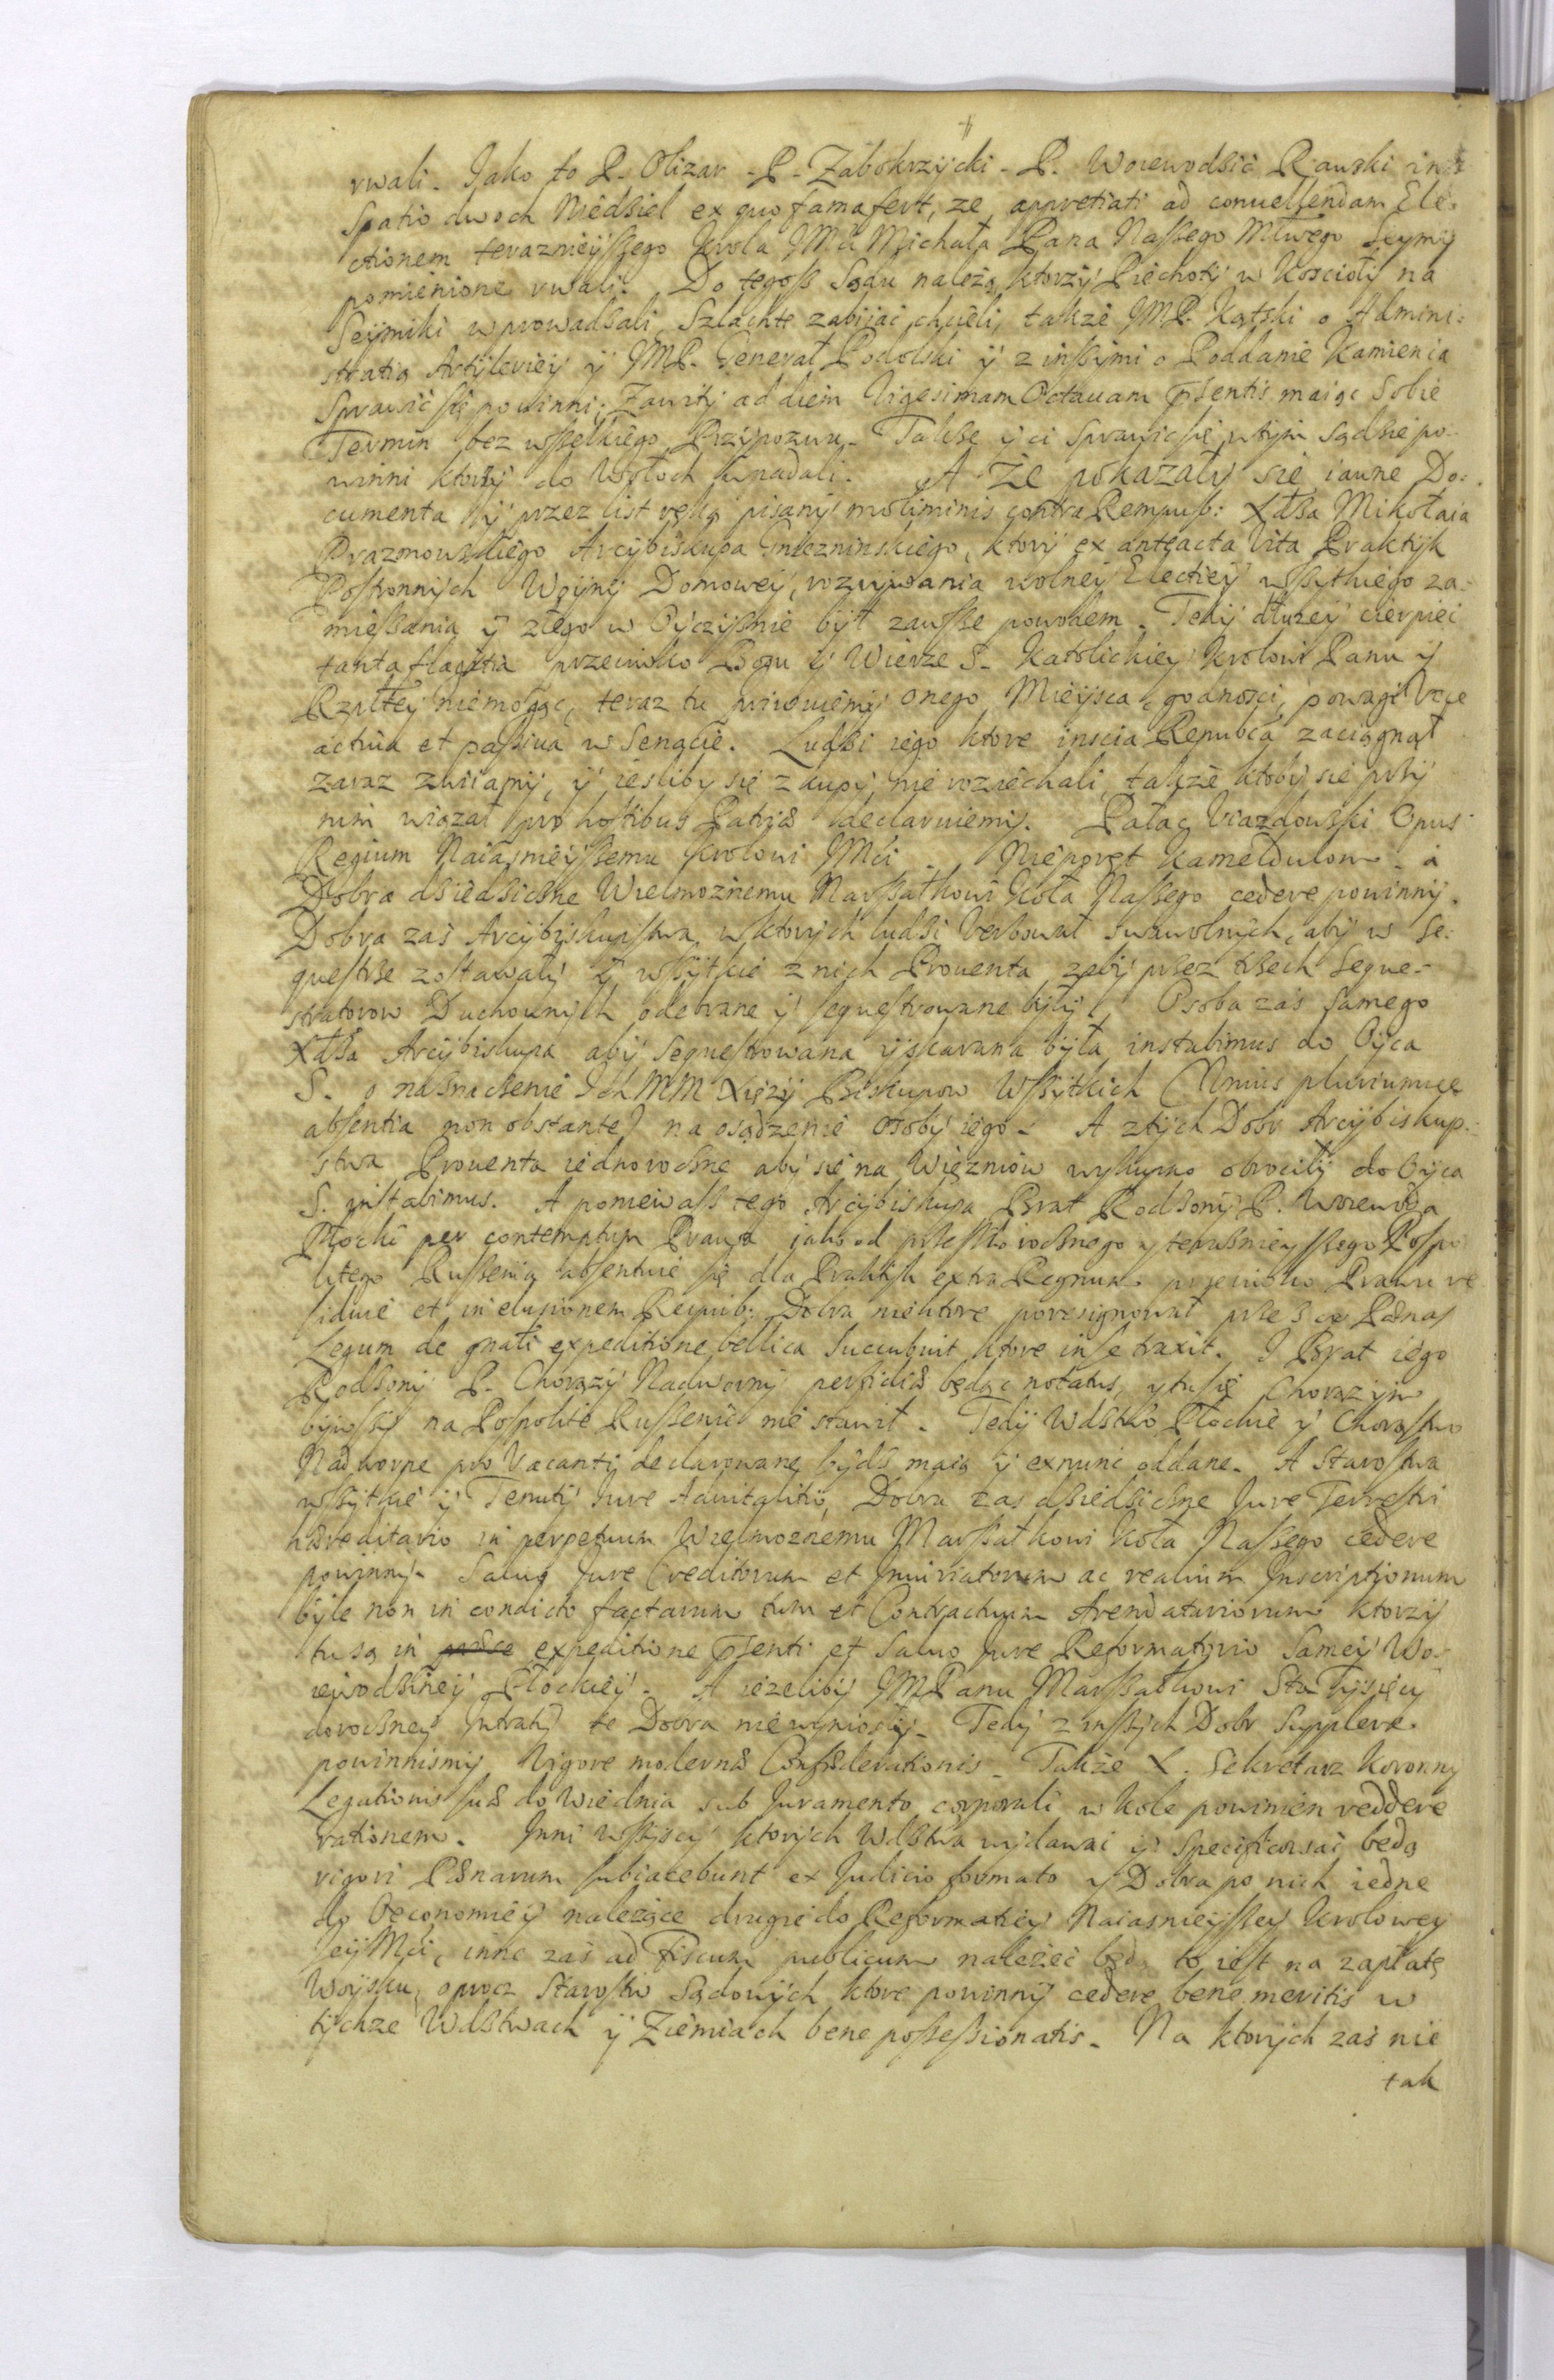 rwali. Jako to P. Olizar - P. Zabokrzycki - P. Woiewodźic Rawski in
Spatio dwoch Niedźiel ex quo fama fert, ze appretiati ad conuellendam Ele-
ctionem terazniéyszego Krola JMći Michała Pana Naszego Młwego Seymy
pomienione rwali. Do tegosz Sądu należą ktorzy Piechoty w Koscioły na
Seymiki wprowadzali, Szlachte zabijać chcieli, takze JMP. Kątski o Admini:
stratią Artyleriey y JMP. Generał Podolski y z inszymi o Poddanie Kamienca
Sprawić się powinni, Zawity ad diem Vigesimam Octauam pſentis maiąc Sobie
Termin bez wszelkiego Przypozwu. Takze y ci Sprawić się w tym sądzie po-
winni ktorzy do Włoch wpadali. A Że pokazały się iawne Do:
cumenta y przez list ręką pisany moliminis contra Rempub: Xdza Mikołaia
Prazmowskiego Arcybiskupa Gniezninskiego, ktory ex anteacta Vita Praktyk
Postronnych Woyny Domowey, rozrywania wolney Electiey wszytkiego za-
mieszania y złego w Oyczyznie był zawsze powodem. Tedy dłużey cierpieć
tanta flagitia przeciwko Bogu y Wierze S. Katolickiey Krolowi Panu y
Rzpltey niemogąc, teraz tu priwuiemy onego Mieysca, godnosci, powagi Voce
actiua et passiua w Senacie. Ludzi iego ktore inscia Repubca zaciągnął
zaraz zwiiamy, y iesliby się z kupy nie roziechali, takze ktoby się przy
nim wiązał pro hostibus Patriæ declaruiemy. Pałac Viazdowski Opus
Regium Naiasnieyszemu Krolowi JMći. Nieporęt Kamedulom. a
Dobra dźiedźiczne Wielmożnemu Marszałkowi Koła Naszego cedere powinny.
Dobra zaś Arcybiskupstwa, w ktorych ludzi Verbował swawolnych, aby w Se:
questrze zostawały y wszytkie z nich Prouenta, zeby przez trzech Seque-
stratorow Duchownych odebrane y sequestrowane były. Osoba zaś samego
Xdza Arcybiskupa aby sequestrowana y skarana była, instabimus do Oyca
S. o naznaczenie Ich MM Xięży Biskupow Wszytkich (Unius pluriumue
absentia non obstante) na osądzenie osoby iego. A z tych Dobr Arcybiskup-
stwa Prouenta iednoroczne aby się na Więzniow wykupno obrociły do Oyca
S. instabimus. A poniewasz tego Arcybiskupa Brat Rodzony P. Woiewoda
Płocki per contemptum Prawa iako od przeszłorocznego y terazniéyszego Pospo
litego Ruszenia absentuie się dla Praktyk extra Regnum przeciwko Prawu re
siduie et in elusionem Reipub: Dobra niektore porezignował przesz co Pænas
Legum de gnali expeditione bellica succubuit ktore in se traxit. I Brat iego
Rodzony P. Chorąży Nadworny perfidiæ będąc notatus, y tu się Chorążym
bywszy na Pospolite Ruszenie nie stawił. Tedy Wdztwo Płockie y Chorąstwo
Nadworne pro Vacanti declarowane bydź maią y ex nunc oddane. A Starostwa
wszytkie y Tenuty Jure Aduitalitio, Dobra zas dźiedźiczne Jure Terrestri
hæreditario in perpetuum Wielmoznemu Marszałkowi Koła Naszego cedere
powinny. Saluo Jure Creditorum et Iniuriatorum ac realium Inscriptionum
byle non in condicto factarum tum et Contractuum Arendatariorum ktorzy
tu są in expeditione pſenti et Saluo Jure Reformatorio Samey Wo-
iewodźiney Płockiey. A iezeliby JMPanu Marszałkowi Sta Tysięcy
doroczney Intraty te Dobra niewyniosły. Tedy z inszych Dobr Supplere
powinnismy Vigore modernæ Confæderationis. Takze X. Sekretarz Koronny
Legationis suæ do Wiednia sub Juramento corporali w Kole powinien reddere
rationem. Inni wszyscy ktorych Wdztwa wydawać y specificować będą
rigori Pænarum subiacebunt ex Judicio formato y Dobra po nich iedne
do Oeconomiey należące drugie do Reformatiey Naiasnieyszey Krolowey
Jey Mći, inne zaś ad Fiscum publicum należeć będą to iest na zapłatę
Woysku, oprocz Starostw Sądowych ktore powinny cedere bene meritis w
tychze Wdztwach y Ziemiach bene possessionatis. Na ktorych zaś nie
tak